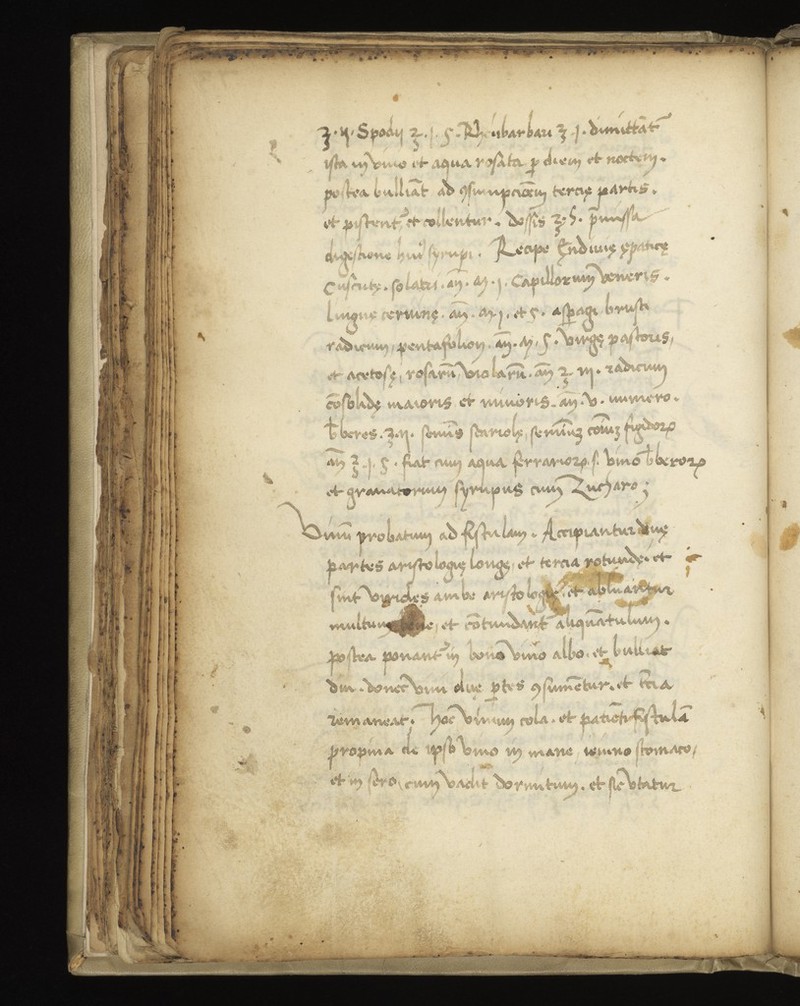 ʒ · ij · Spodij ʒ · j · ς · Rheubarbari ʒ · j · dimittāt᷒
ista in vino et aqua rosata p̱ diem et noctem ·
postea bulliāt ad ꝯsumpcioēm tercię partis ·
et pistent᷒ et collentur · dossis ʒ · ς · p̄missa
digestione hui᷒ syrupi · Recipe Endiuię epaticę
Cuscutę · solatri · añ · ᵯ · j · Capillorum veneris ·
linguę ceruinę · añ · ᵯ j · et ς · asp̱agi brusci
radicum, pentafolion · añ · ᵯ · ς · virgę pastoris,
et acetosę, rosarū violarū · añ ʒ · iij · radicum
cōsolidę maioris et minoris · añ · v · numero ·
b̄beres · ʒ · ij · semīs scariolę, semīuʒ cōīuʒ frigidoꝝ
añ ʒ · j · ς · fiat cum aqua ferrarioꝝ · s · vino b̄beroꝝ
et granatorum syrupus cum Zucharo ;
Vinū probatum ad fistulam · Accipiantur duę
partes aristologię longę, et tercia rotundę · et
sint virides ambe aristologię · et abluantur
multum bene, et cōtundant᷒ aliquātulum ·
postea ponant᷒ in bono vino albo · et bulliāt
diu · donec vini duę p̱tes ꝯsumētur · et t̄cia
remaneat · Hoc vinum cola · et patiēti fistulā
propina de ipso vino in mane ieiuno stomaco,
et in sero, cum vadit dormitum · et sic vtatur